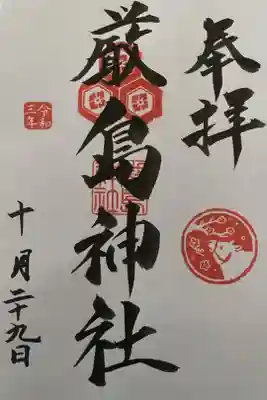 奉拝
厳島神社
令和
三年
十月二十九日